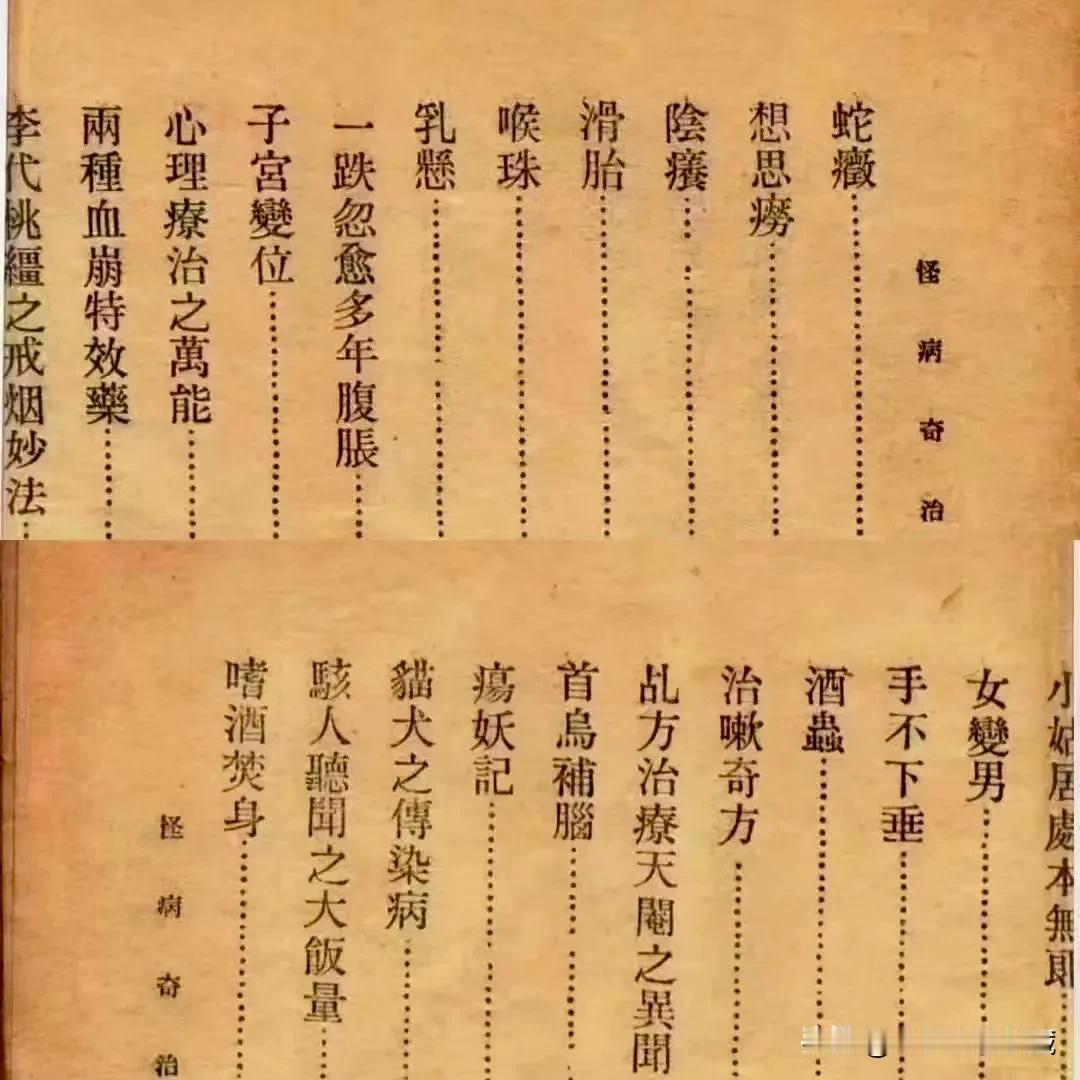 怪病奇治
蛇癥
想思癆
陰癢
滑胎
喉珠
乳懸
一跌忽愈多年腹脹
子宮變位
心理療治之萬能
兩種血崩特效藥
李代桃繮之戒烟妙法
小姑居處本無郎
女變男
手不下垂
酒蟲
治嗽奇方
乩方治療天閹之異聞
首烏補腦
瘍妖記
貓犬之傳染病
駭人聽聞之大飯量
嗜酒焚身
怪病奇治